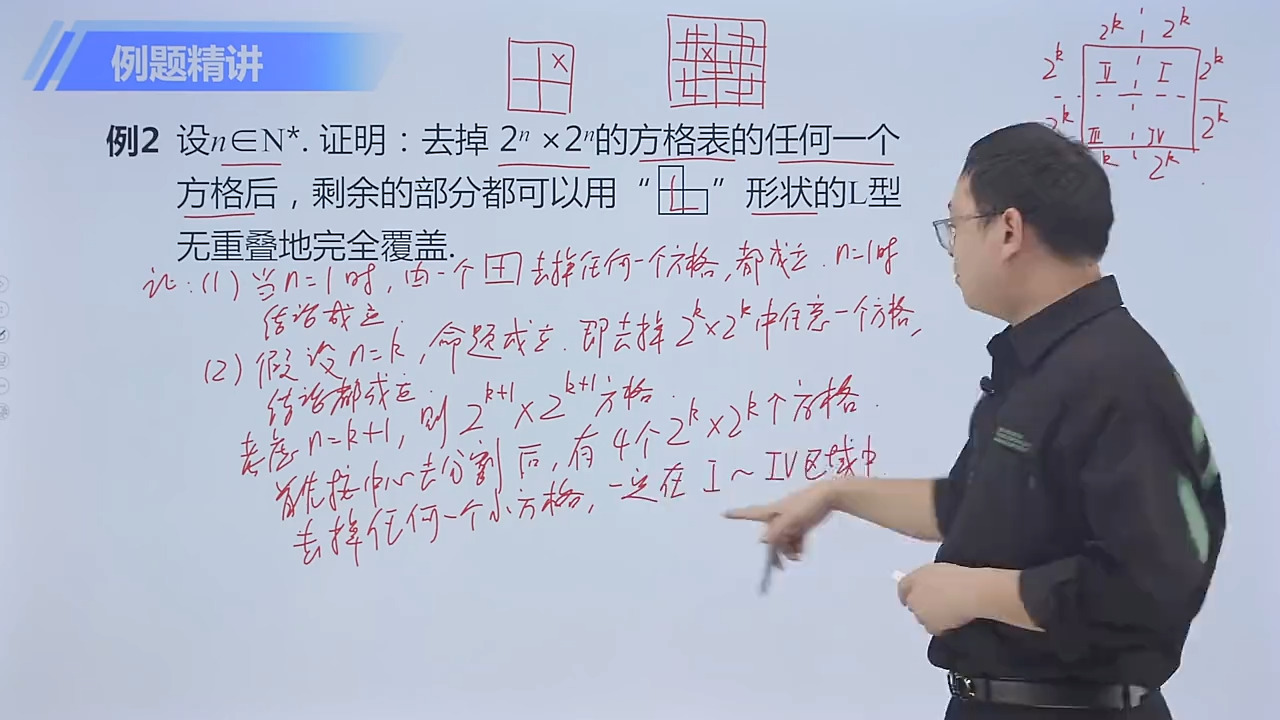 例题精讲
例2 设n∈N*. 证明：去掉 2ⁿ×2ⁿ的方格表的任何一个
方格后，剩余的部分都可以用“ ”形状的L型
无重叠地完全覆盖.
证：(1) 当n=1时，由一个田去掉任何一个方格，都成立. n=1时
结论成立.
(2) 假设n=k，命题成立. 即去掉2ᵏ×2ᵏ中任意一个方格，
结论都成立.
考虑n=k+1，则2ᵏ⁺¹×2ᵏ⁺¹方格.
首先按中心去分割后，有4个2ᵏ×2ᵏ个方格.
去掉任何一个小方格，一定在I~IV区域中.
x
x
2ᵏ 2ᵏ
2ᵏ II I 2ᵏ
2ᵏ III IV 2ᵏ
k 2ᵏ